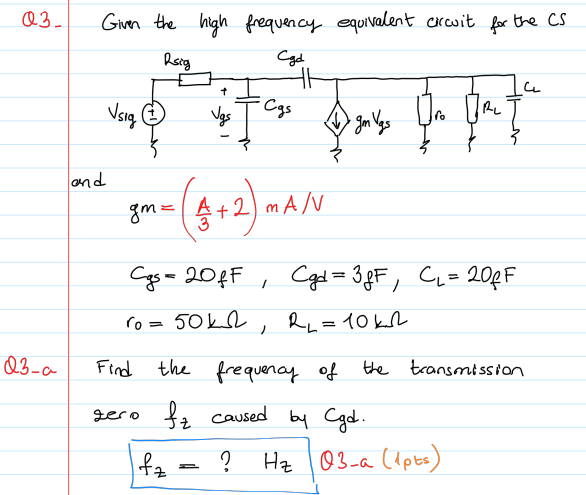 Q3- Given the high frequency equivalent circuit for the CS
Rsig Cgd
Vsig + Vgs - Cgs gmVgs ro RL CL
and
gm = (A/3 + 2) mA/V
Cgs = 20fF , Cgd = 3fF , CL = 20fF
ro = 50kΩ , RL = 10kΩ
Q3-a Find the frequency of the transmission
zero fz caused by Cgd.
fz = ? Hz Q3-a (1pts)